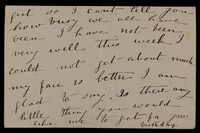 girl so I cant tell you
how busy we all have
been I have not been
very well this week I
could not get about much
my face is better I am
glad to say. Is there any
little thing you would
like me to get for your
birthday